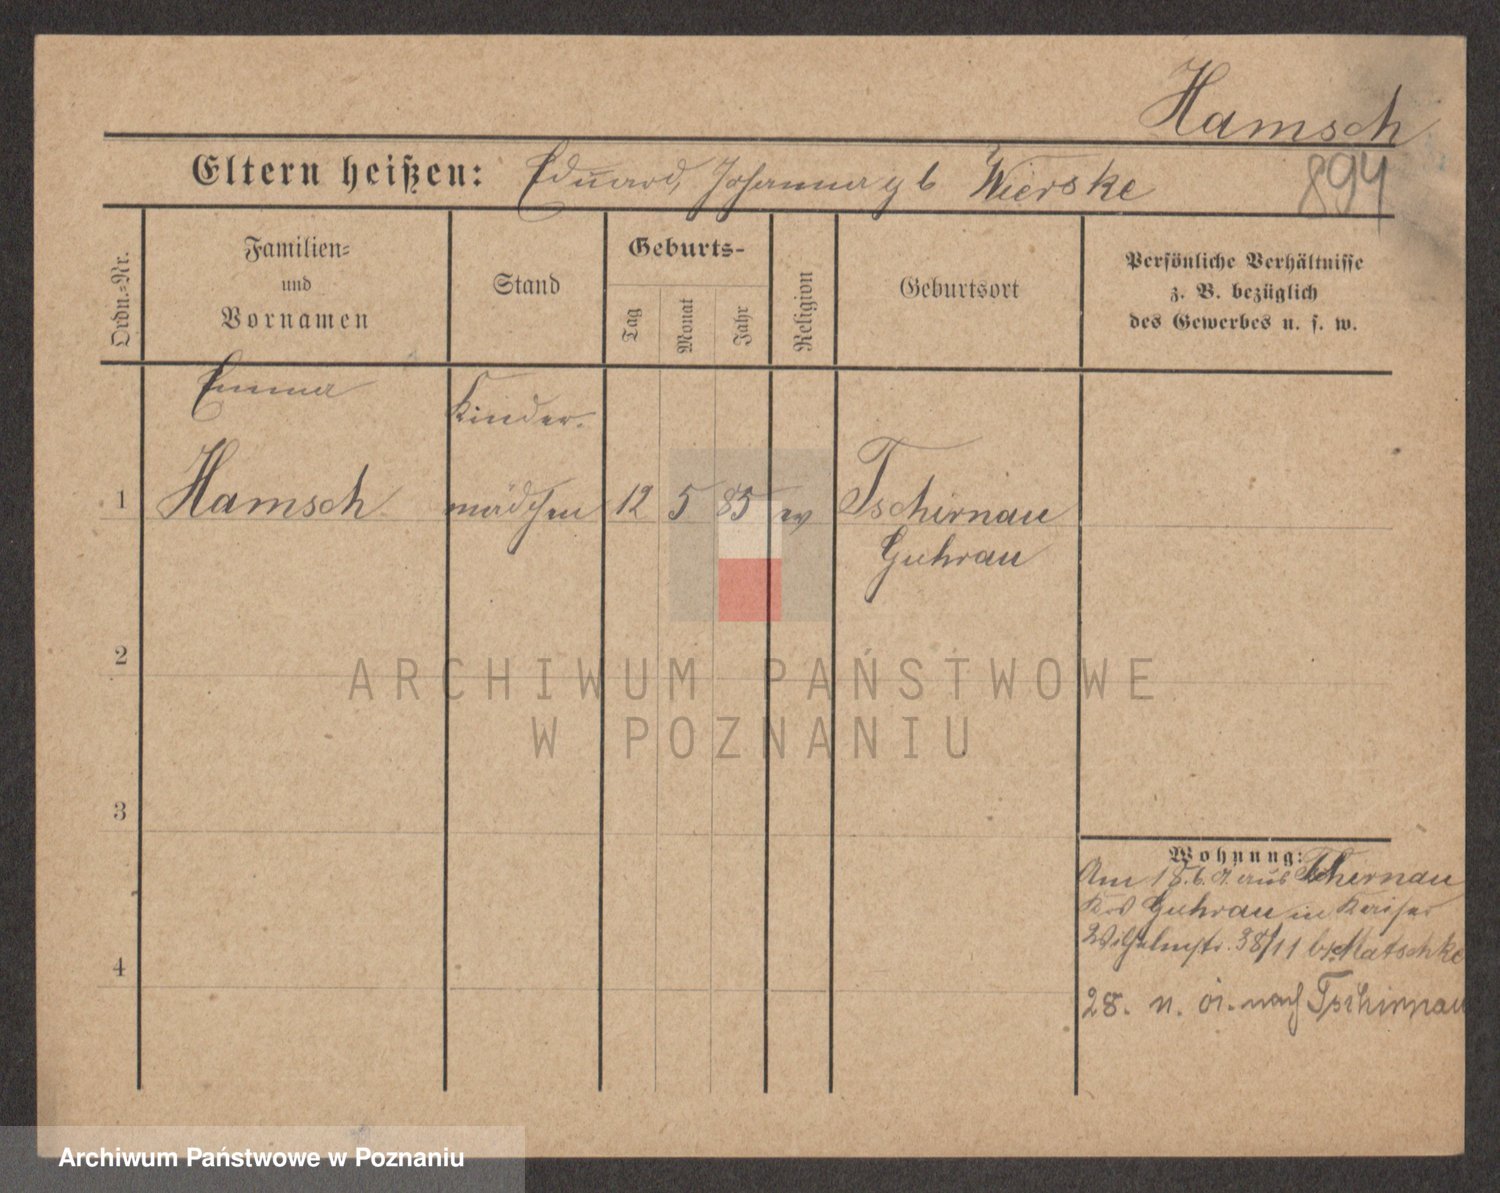 Hamsch
894
Eltern heißen: Eduard, Johanna gb Wierske
Ordn.-Nr.
Familien-
und
Vornamen
Stand
Geburts-
Tag
Monat
Jahr
Religion
Geburtsort
Persönliche Verhältnisse
z. B. bezüglich
des Gewerbes u. s. w.
Emma
Kinder-
1 Hamsch mädchen 12 5 85 ev Tschirnau
Guhrau
2
3
4
Wohnung:
Am 18.6. aus Tschirnau
Krs Guhrau in Kaiser
Wilhelmstr. 38/11 b. Matschke
28. nach Tschirnau
ARCHIWUM PAŃSTWOWE
W POZNANIU
Archiwum Państwowe w Poznaniu